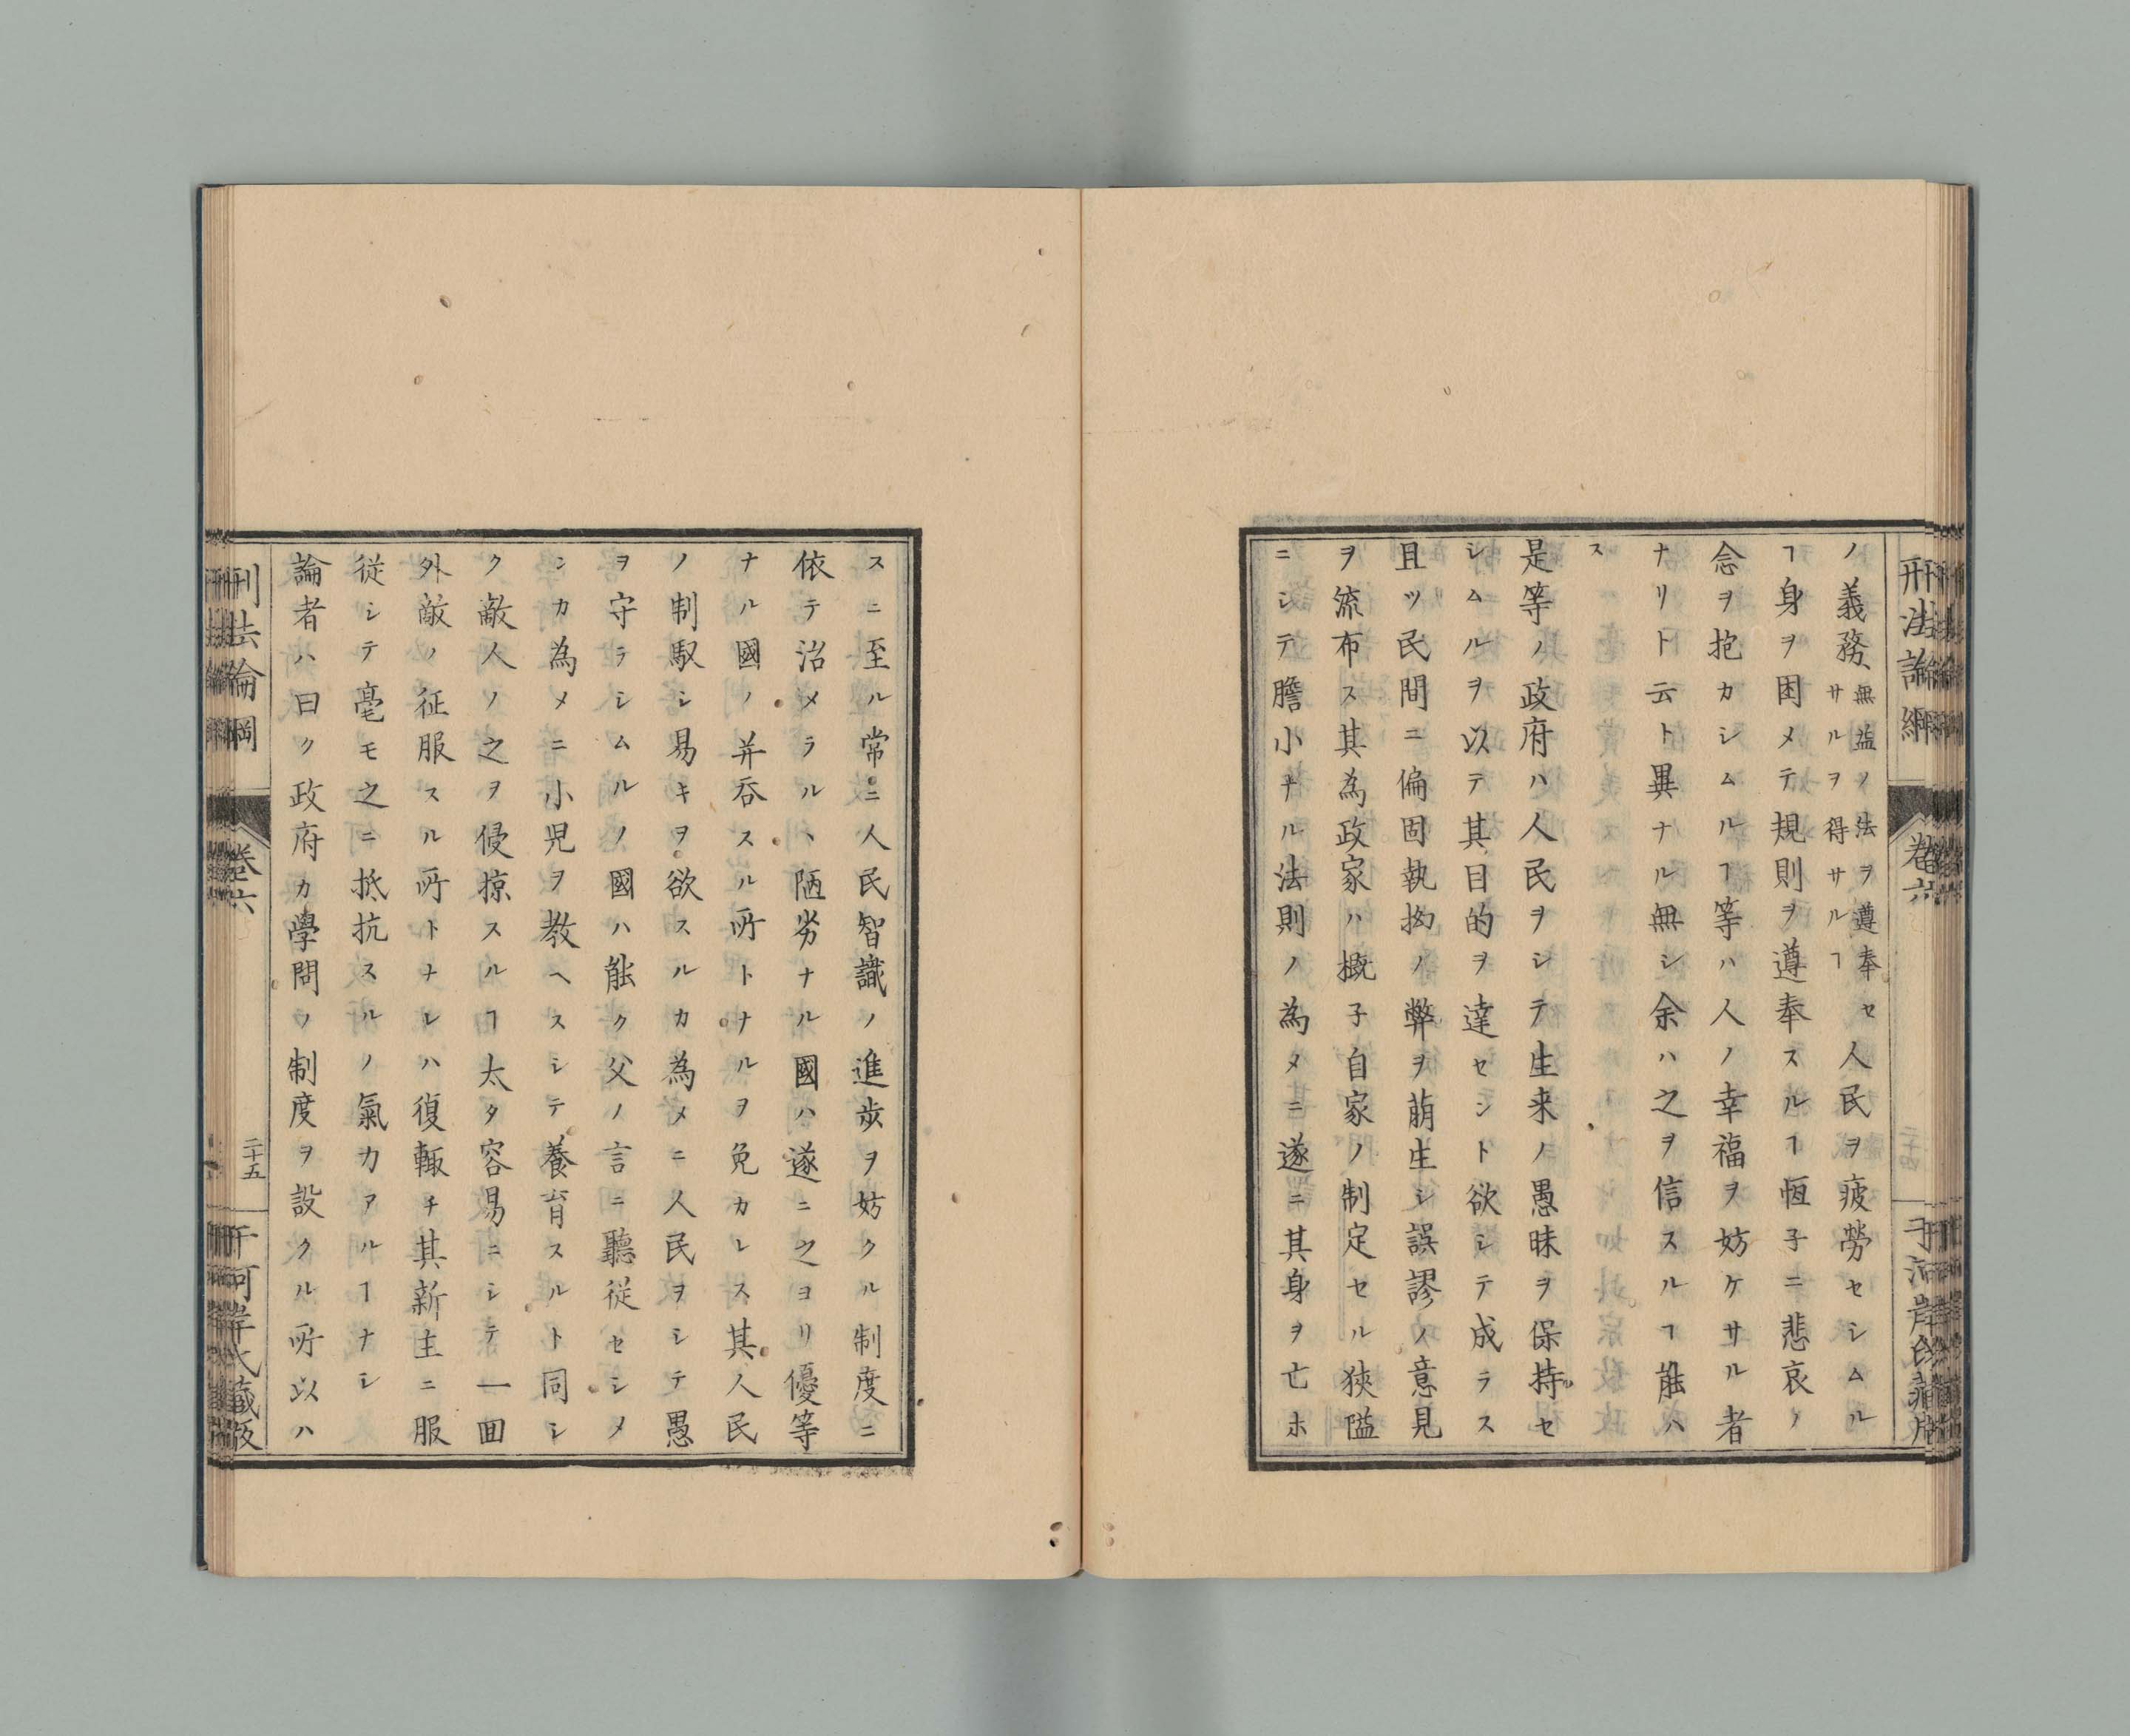 刑法論綱
卷六
ノ義務、無益ノ法ヲ遵奉セサルヲ得サルヿ人民ヲ疲勞セシムル
ヿ身ヲ困メテ規則ヲ遵奉スルヿ恆子ニ悲哀ノ
念ヲ抱カシムルヿ等ハ人ノ幸福ヲ妨ケサル者
ナリト云ト異ナル無シ余ハ之ヲ信スルヿ能ハ
ス
是等ノ政府ハ人民ヲシテ生来ノ愚昧ヲ保持セ
シムルヲ以テ其目的ヲ達セント欲シテ成ラス
且ツ民間ニ偏固執拗ノ弊ヲ萠生シ誤謬ノ意見
ヲ流布ス其為政家ハ概子自家ノ制定セル狹隘
ニシテ膽小ナル法則ノ為メニ遂ニ其身ヲ亡ホ
スニ至ル常ニ人民智識ノ進歩ヲ妨クル制度ニ
依テ治メラルヽ陋劣ナル國ハ遂ニ之ヨリ優等
ナル國ノ并呑スル所トナルヲ免カレス其人民
ノ制馭シ易キヲ欲スルカ為メニ人民ヲシテ愚
ヲ守ラシムルノ國ハ能ク父ノ言ニ聽從セシメ
ンカ為メニ小児ヲ教ヘスシテ養育スルト同シ
ク敵人ノ之ヲ侵掠スルヿ太タ容易ニシテ一回
外敵ノ征服スル所トナレハ復輙チ其新主ニ服
從シテ毫モ之ニ抵抗スルノ氣力アルヿナシ
論者ハ曰ク政府カ學問ノ制度ヲ設クル所以ハ
刑法論綱
卷六
二十五